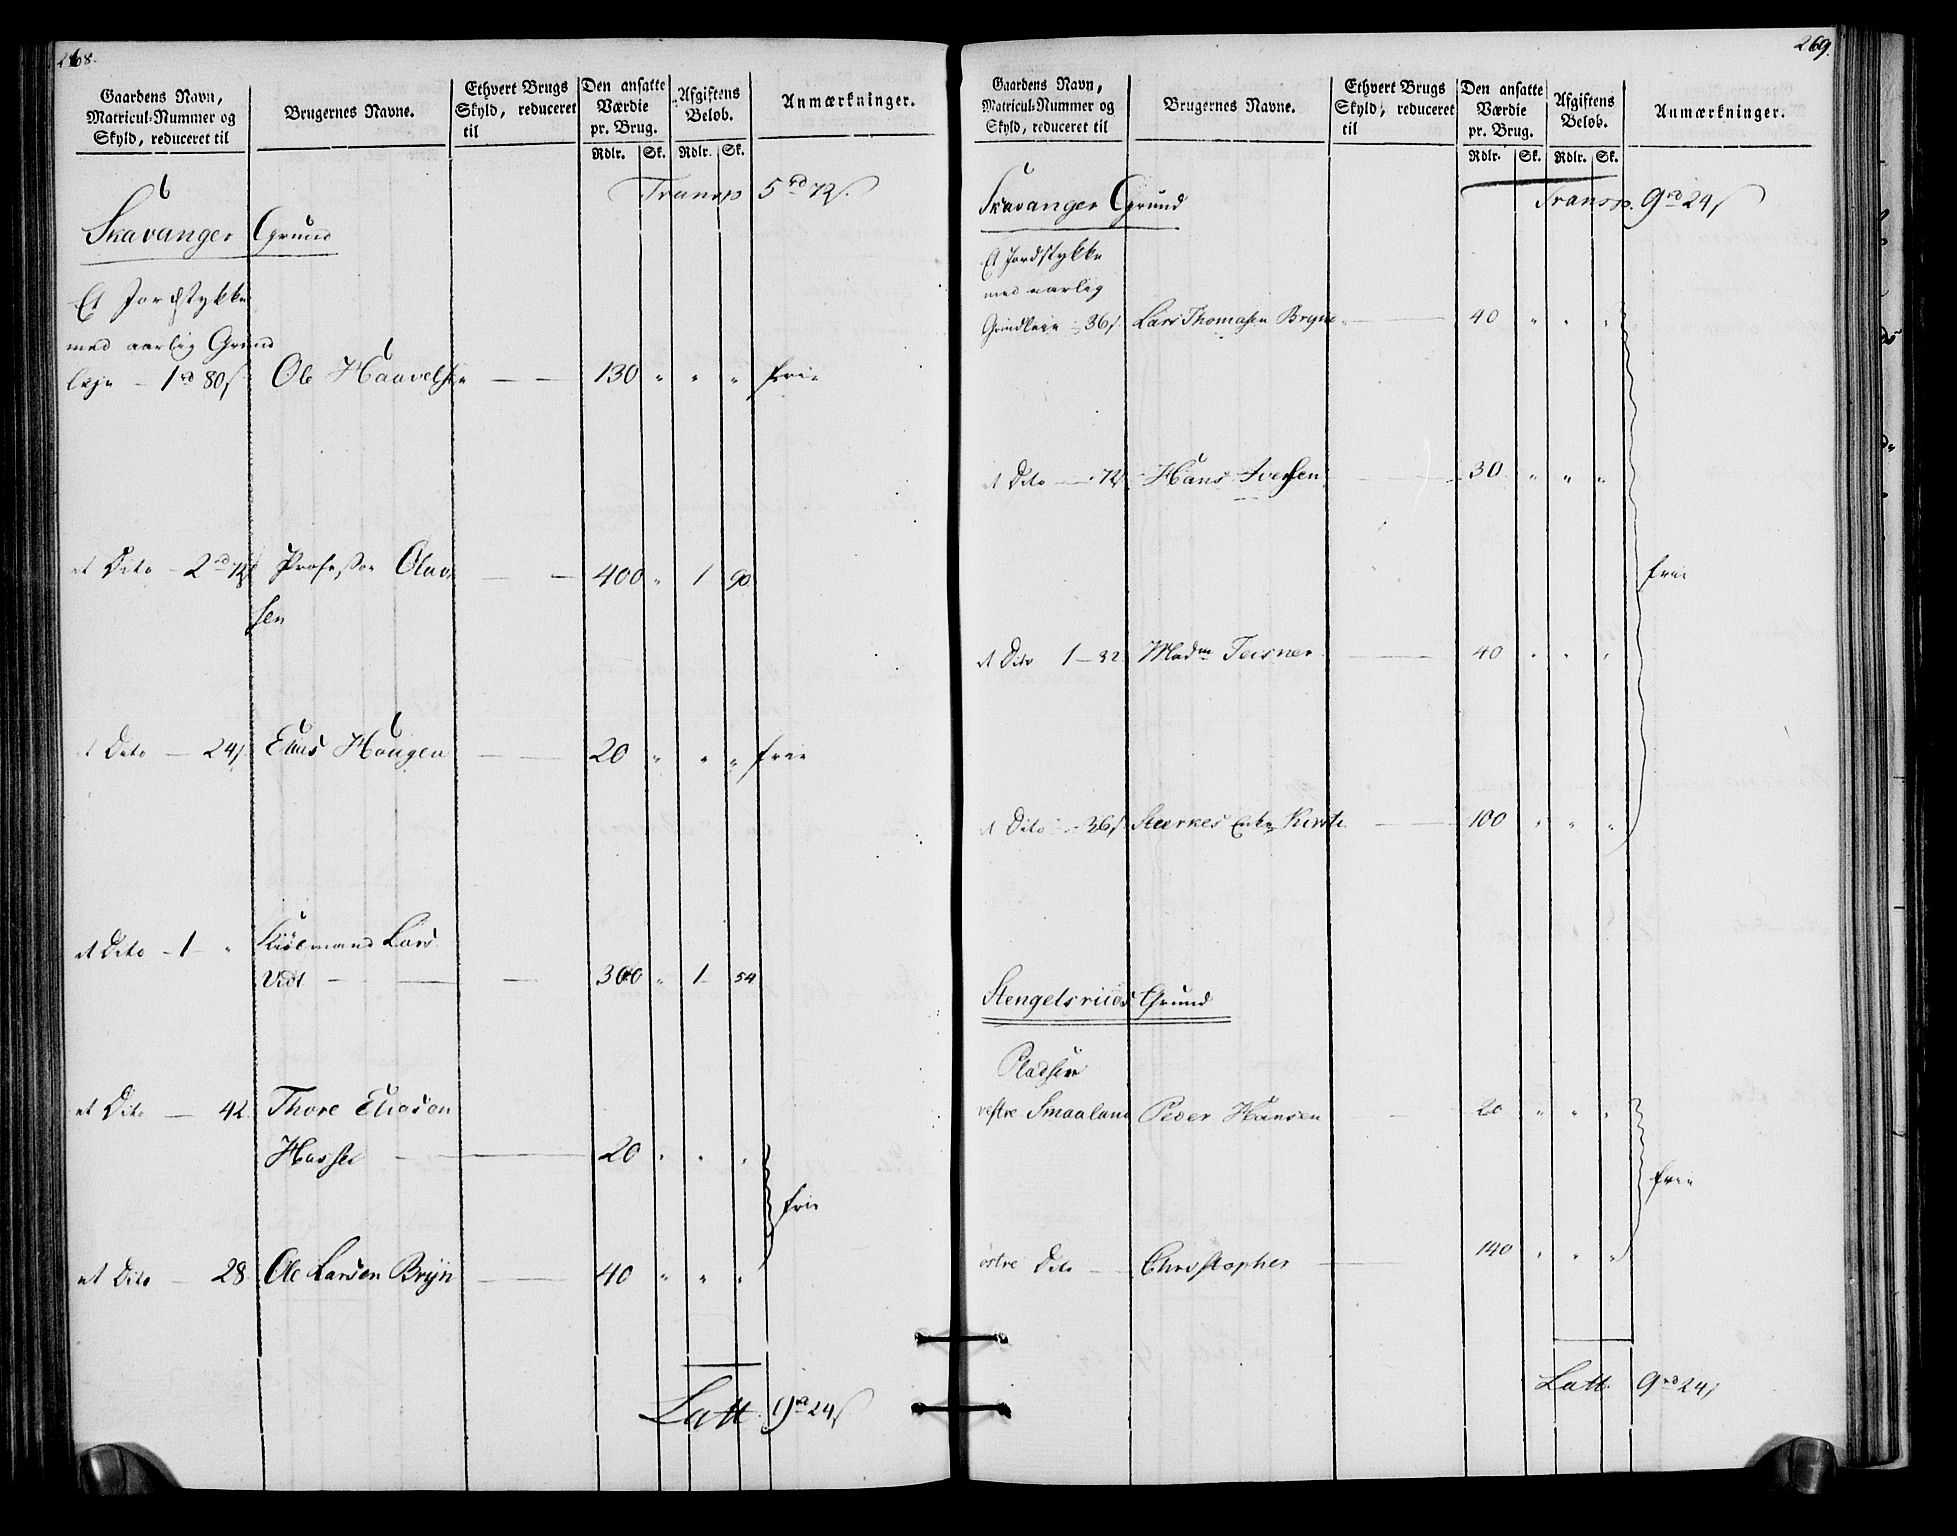 268.
Gaardens Navn,
Matricul-Nummer og
Skyld, reduceret til
Brugernes Navne.
Ethvert Brugs
Skyld, reduceret
til
Den ansatte
Værdie
pr. Brug.
Rdlr. Sk.
Afgiftens
Beløb.
Rdlr. Sk.
Anmærkninger.
Transp 5 rd 72 s
Skavanger Grund
Et Jordstykke
med aarlig Grund
leje – 1 rd 80 s Ole Haavelsen — — 130 " " " frie
et Dito – 2 rd 72 s Professor Olav — — 400 " 1 90
sen
et Dito — 24 s Elias Haugen — — 20 " " " frie
et Dito – 1 – " Kiøbmand Lars
Vidt — — — 300 " 1 54
et Dito — 42 Thore Eliason
Hassel — — 20 " " "
frie
et Dito — 28 Ole Larsen Bryn — — 40 " " "
Latt 9 rd 24 s
269.
Gaardens Navn,
Matricul-Nummer og
Skyld, reduceret til
Brugernes Navne.
Ethvert Brugs
Skyld, reduceret
til
Den ansatte
Værdie
pr. Brug.
Rdlr. Sk.
Afgiftens
Beløb.
Rdlr. Sk.
Anmærkninger.
Transp. 9 rd 24 s
Skavanger Grund
Et Jordstykke
med aarlig
Grundleie – 36 s Lars Thomasen Bryn — 40 " " "
et Dito — 72 s Hans Iversen — 30 " " "
frie
et Dito 1 – 32 Madm Teisner — 40 " " "
et Dito – 36 s Stærkes Enke Kirste — 100 " " "
Stengelsriids Grund
Pladsen
vestre Smaaland Peder Hansen — 20 " " "
frie
østre Dito — Christopher — 140 " " "
Latt. 9 rd 24 s